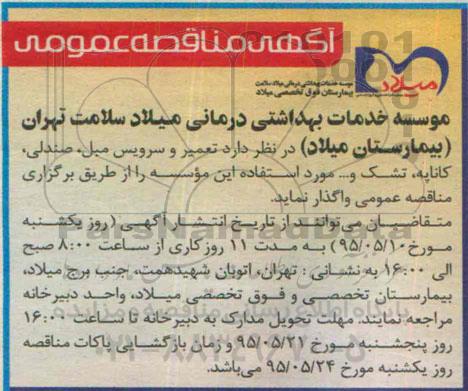 آگهی مناقصه عمومی
میلاد
موسسه خدمات بهداشتی درمانی میلاد سلامت
بیمارستان فوق تخصصی میلاد
موسسه خدمات بهداشتی درمانی میلاد سلامت تهران
(بیمارستان میلاد) در نظر دارد تعمیر و سرویس مبل، صندلی،
کاناپه، تشک و... مورد استفاده این مؤسسه را از طریق برگزاری
مناقصه عمومی واگذار نماید.
متقاضیان می‌توانند از تاریخ انتشار آگهی (روز یکشنبه
مورخ ۹۵/۰۵/۱۰) به مدت ۱۱ روز کاری از ساعت ۸:۰۰ صبح
الی ۱۶:۰۰ به نشانی: تهران، اتوبان شهید همت، جنب برج میلاد،
بیمارستان تخصصی و فوق تخصصی میلاد، واحد دبیرخانه
مراجعه نمایند. مهلت تحویل مدارک به دبیرخانه تا ساعت ۱۶:۰۰
روز پنجشنبه مورخ ۹۵/۰۵/۲۱ و زمان بازگشایی پاکات مناقصه
روز یکشنبه مورخ ۹۵/۰۵/۲۴ می‌باشد.